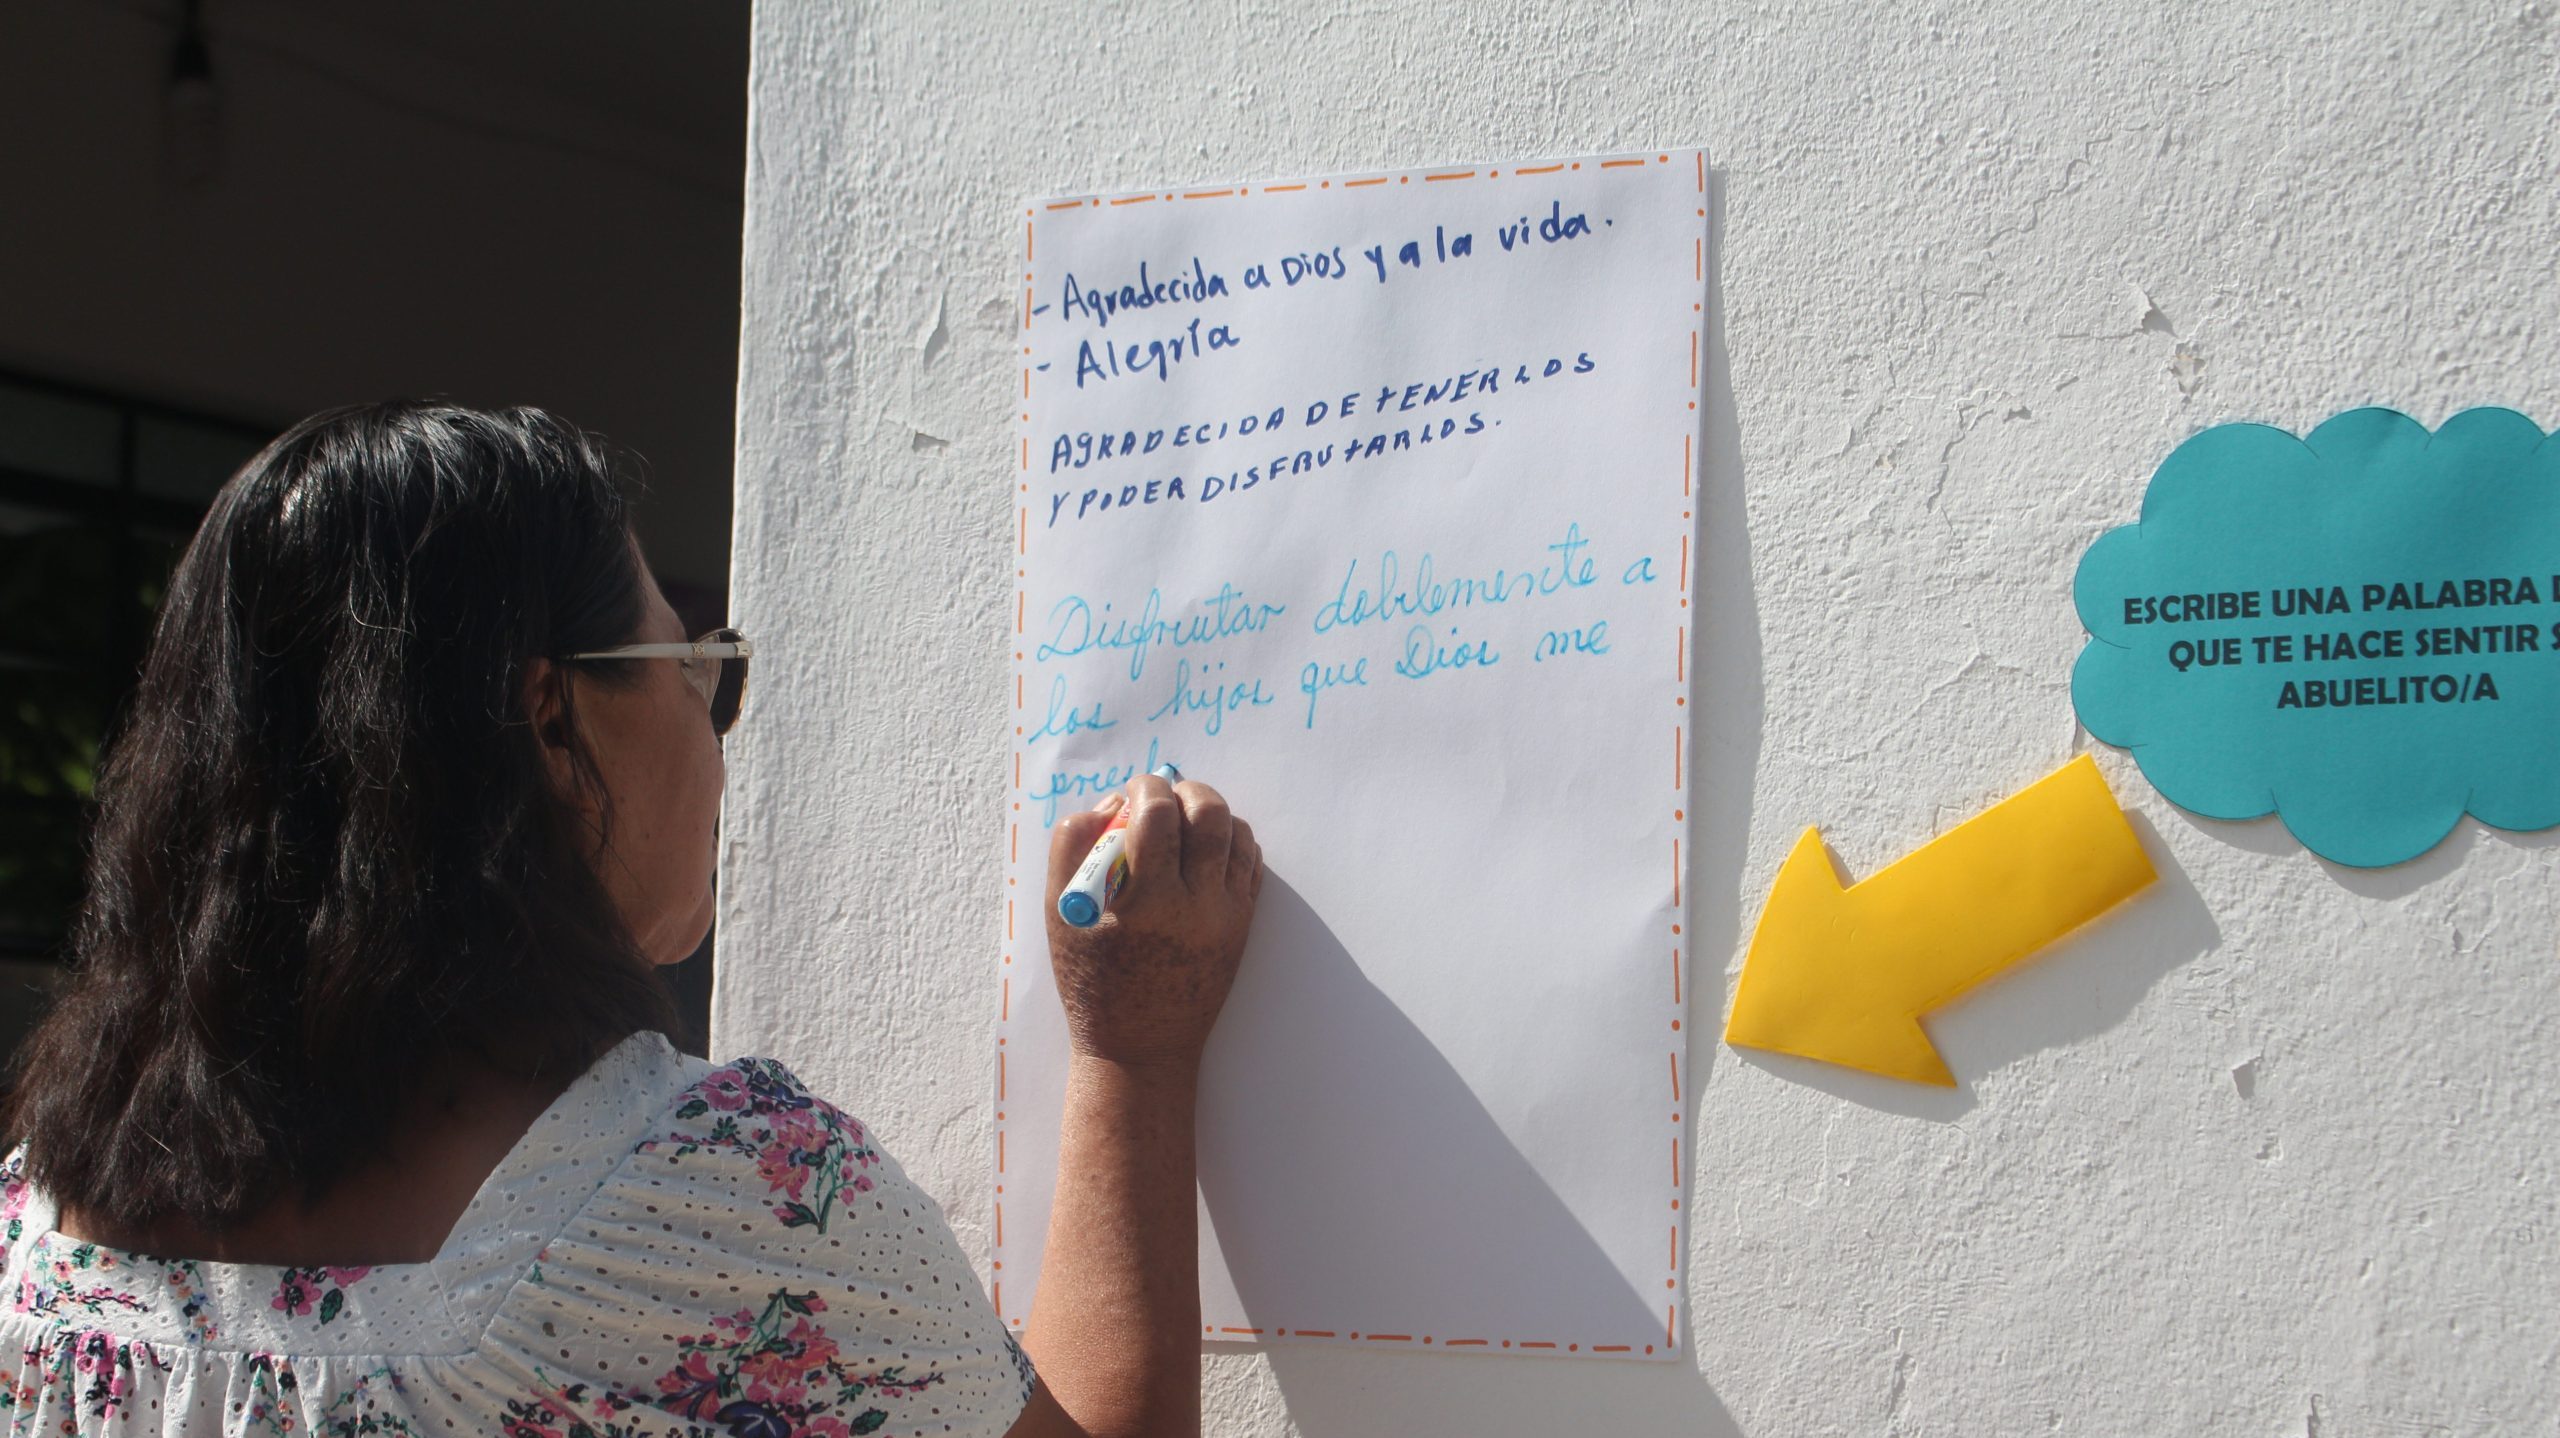 - Agradecida a Dios y a la vida.
- Alegría
AGRADECIDA DE tENERLOS
Y PODER DISFRUtARLOS.
Disfrutar doblemente a
los hijos que Dios me
ESCRIBE UNA PALABRA
QUE TE HACE SENTIR
ABUELITO/A